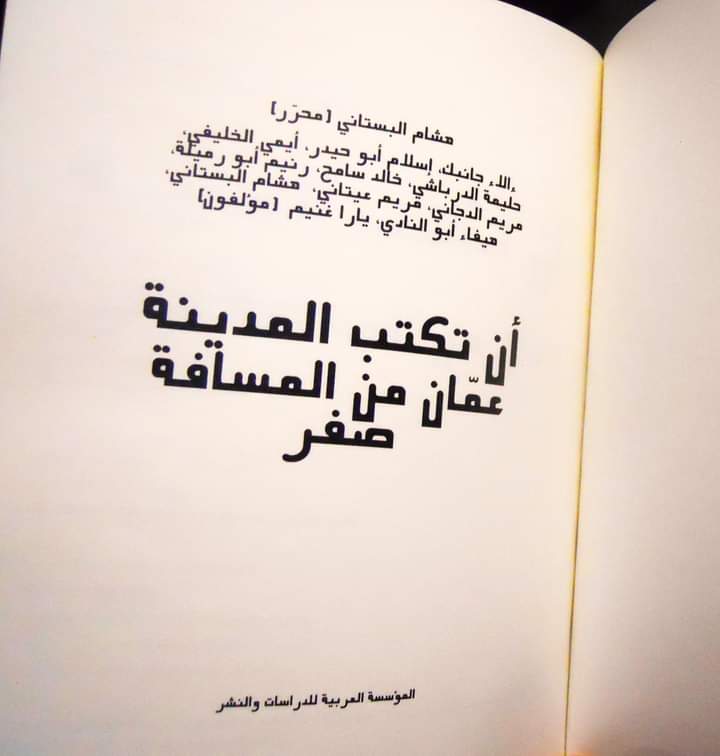 هشام البستاني [محرّر]
ءالاء جانبك، إسلام أبو حيدر، أيمي الخليفي،
حليمة الدرباشي، خالد سامح، رنيم أبو رميلة،
مريم الدجاني، مريم عيتاني، هشام البستاني،
هيفاء أبو النادي، يارا غنيم [مؤلفون]
أن تكتب المدينة
عمّان من المسافة
صفر
المؤسسة العربية للدراسات والنشر